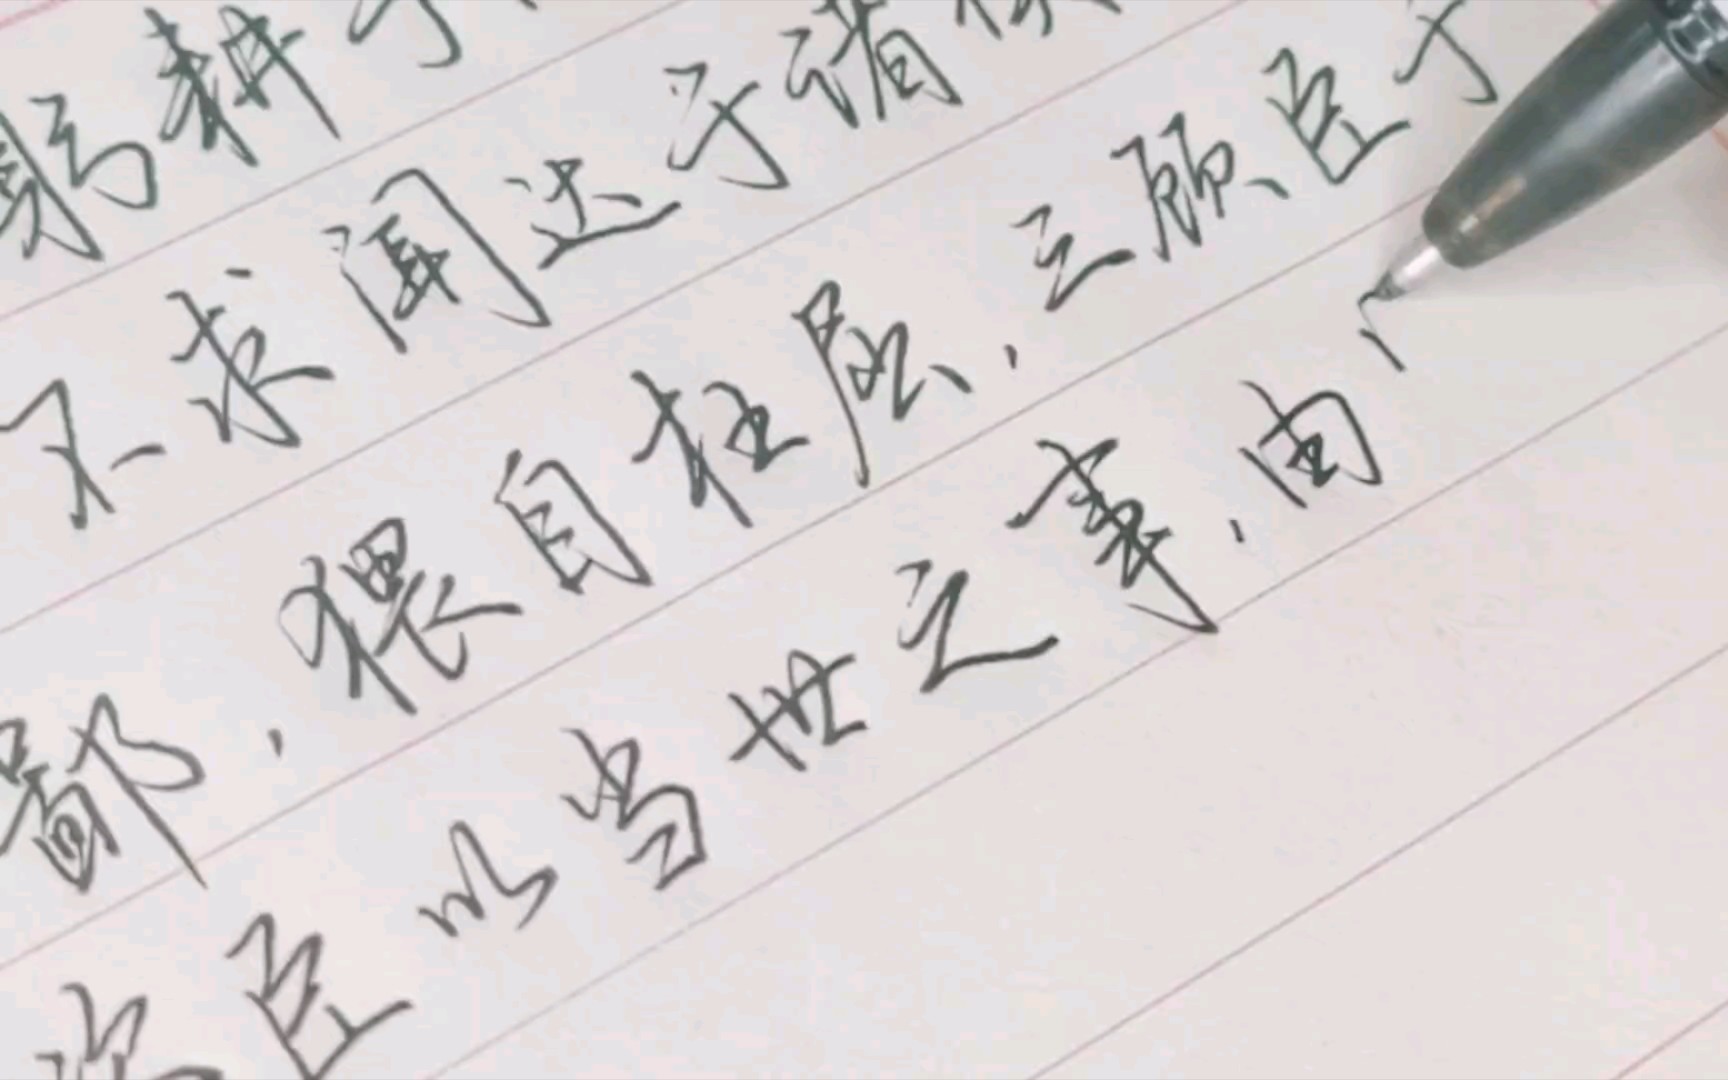 躬耕于
不求闻达于诸侯
鄙，猥自枉屈，三顾臣于
咨臣以当世之事，由